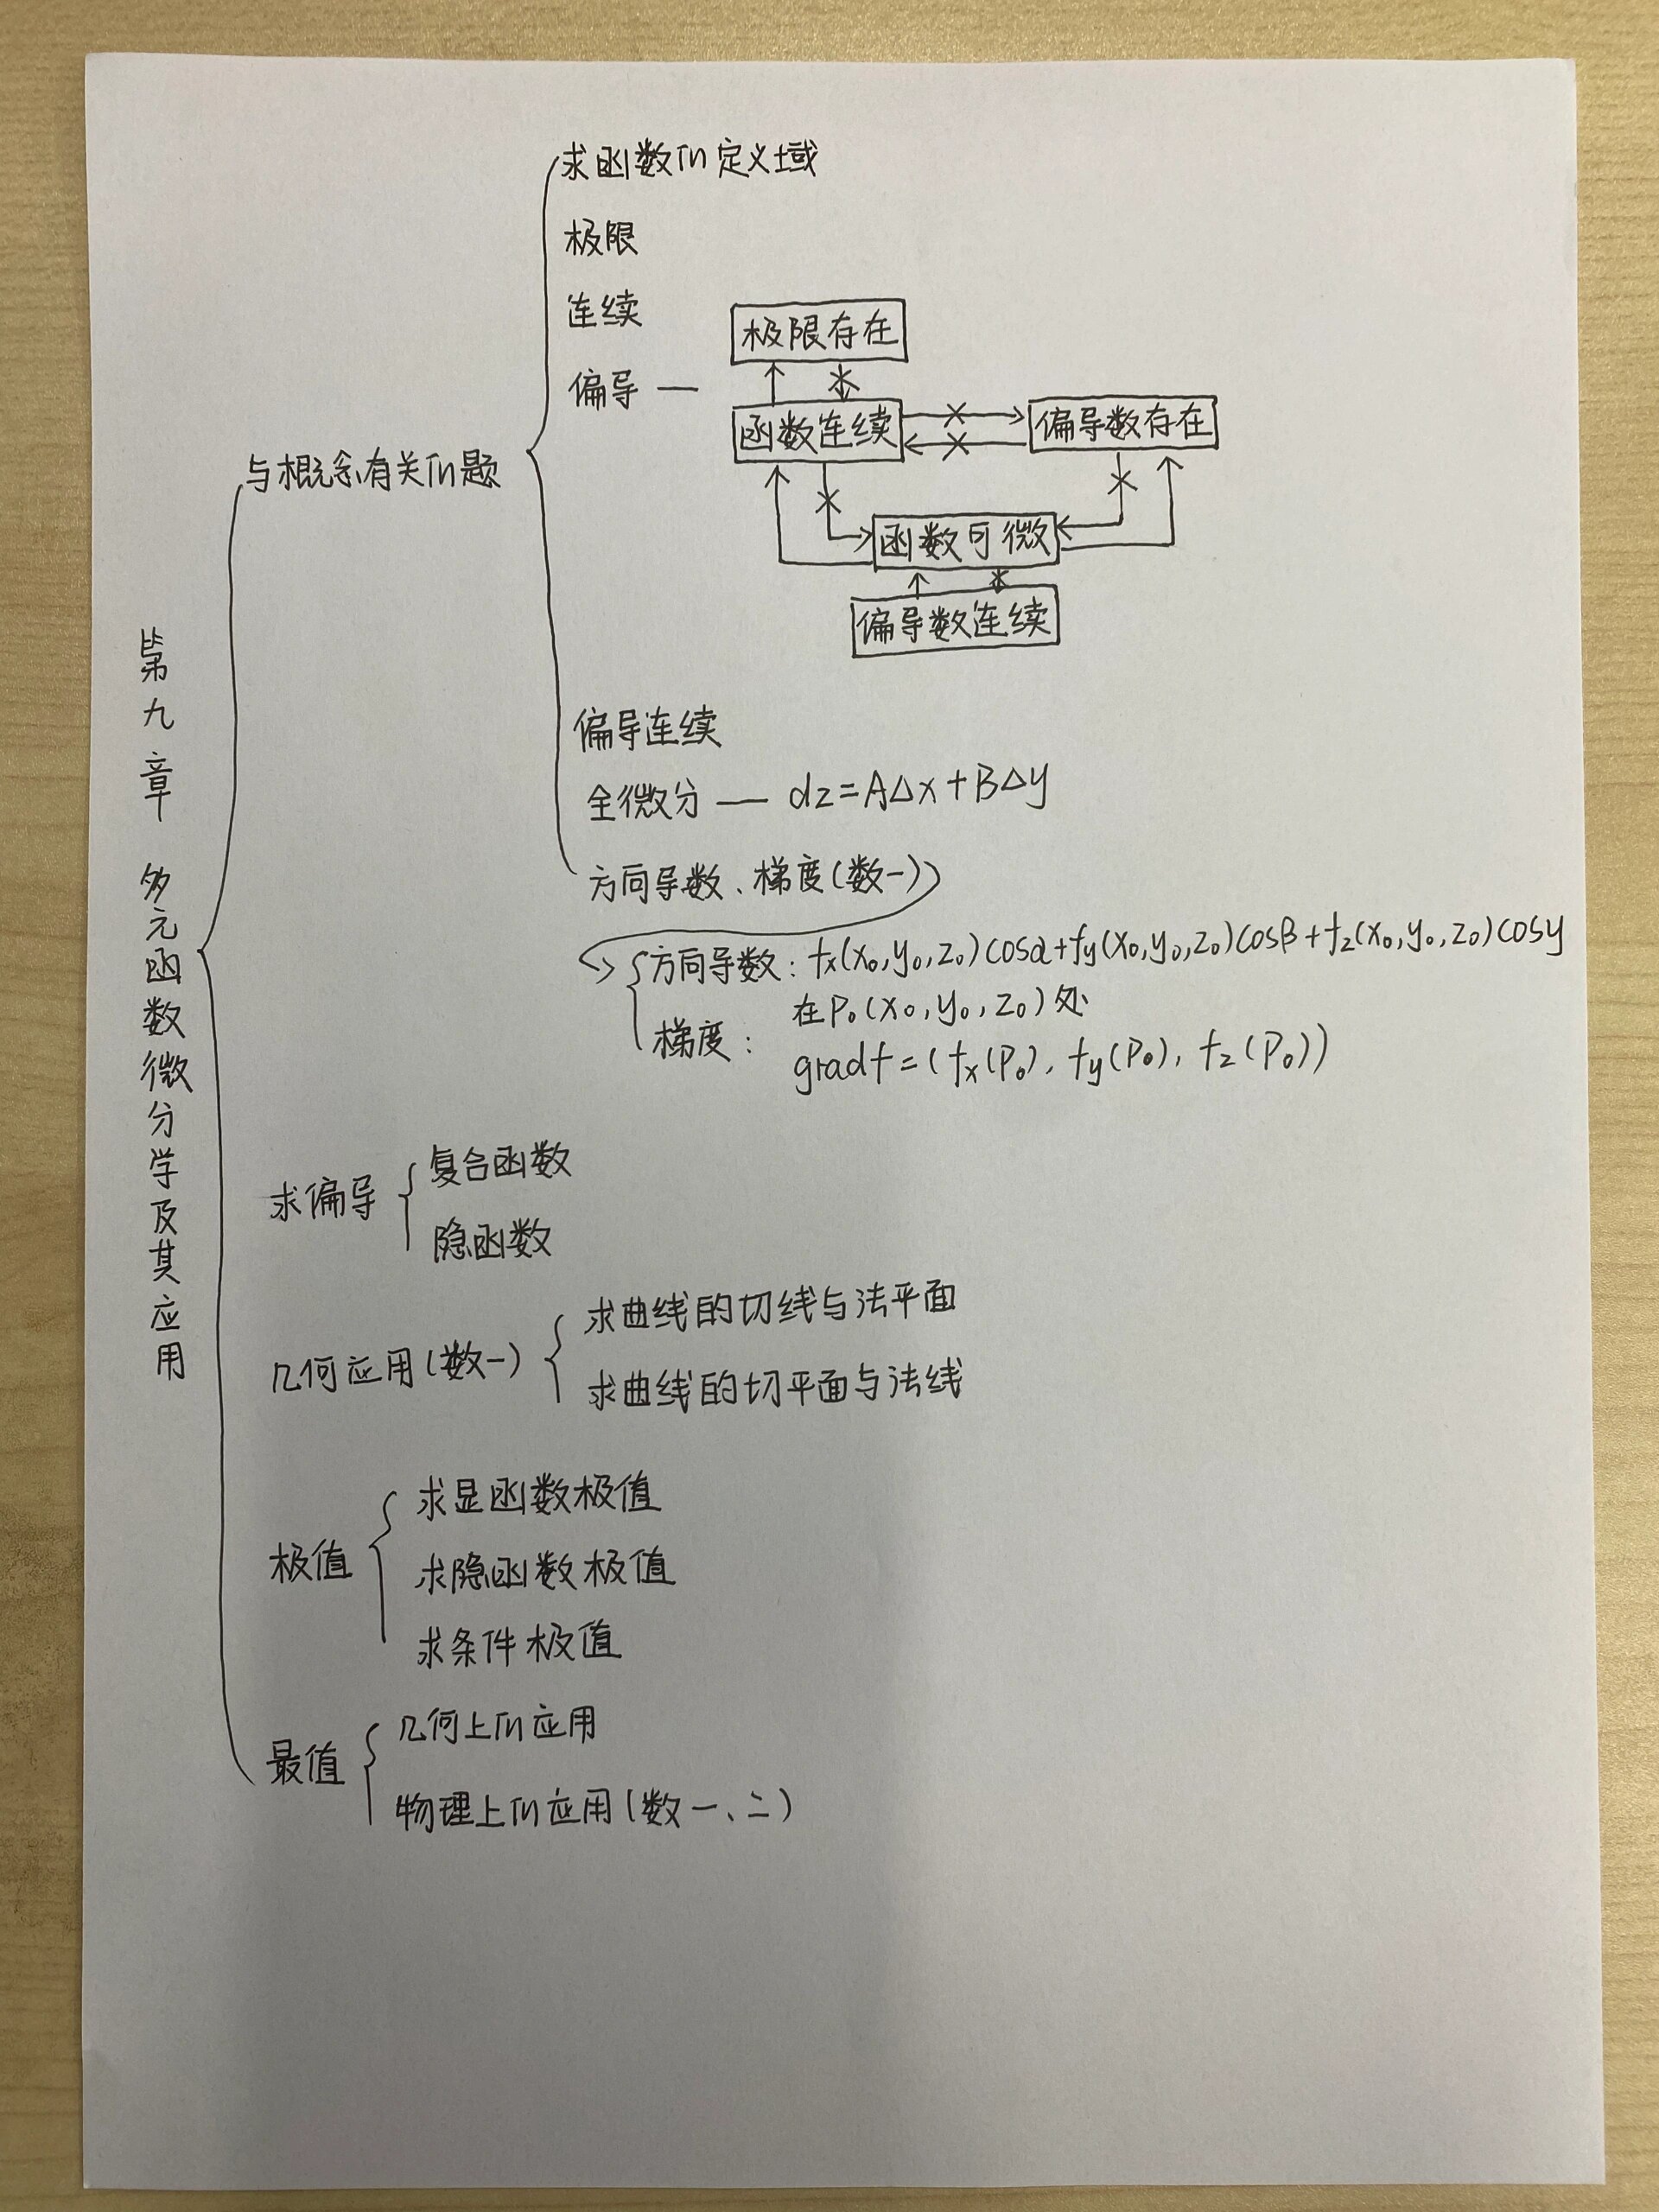 第九章 多元函数微分学及其应用
与概念有关的题
求函数的定义域
极限
连续
偏导 —
极限存在
函数连续
偏导数存在
函数可微
偏导数连续
偏导连续
全微分 — dz=AΔx+BΔy
方向导数、梯度(数一)
方向导数: fx(x₀,y₀,z₀)cosα+fy(x₀,y₀,z₀)cosβ+fz(x₀,y₀,z₀)cosγ
在P₀(x₀,y₀,z₀)处
梯度:
gradf=(fx(P₀), fy(P₀), fz(P₀))
求偏导
复合函数
隐函数
几何应用(数一)
求曲线的切线与法平面
求曲线的切平面与法线
极值
求显函数极值
求隐函数极值
求条件极值
最值
几何上的应用
物理上的应用(数一、二)